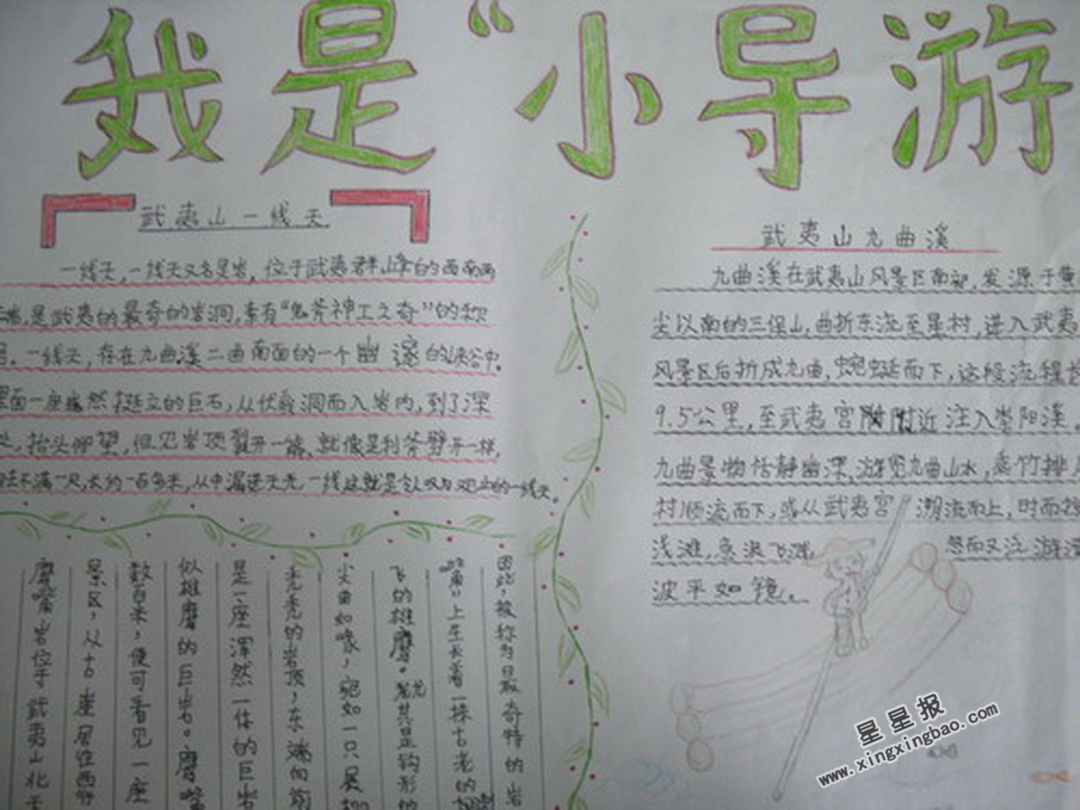 我是“小导游
武夷山一线天
一线天,一线天又名是岩,位于武夷群峰的西南两
端,是武夷的最奇的岩洞,素有“鬼斧神工之奇”的称
一线天,存在九曲溪二曲南面的一个幽邃的峡谷中.
里面一座巍然挺立的巨石,从伏羲洞而入岩内,到了深
处,抬头仰望,但见岩顶裂开一
就像是利斧劈开一样,
不满一尺,长约一百多米,从中漏进天光一线这就是令人叹
观止的一线天.
武夷山九曲溪
九曲溪在武夷山风景区南部,发源于黄
尖以南的三保山,曲折东流至星村,进入武夷
风景区后折成九曲,蜿蜒而下,这段流程长
9.5公里,至武夷宫附附近注入崇阳溪。
九曲景物恬静幽深,游览九曲山水,乘竹排
村顺流而下,或从武夷宫溯流而上,时而掠
浅滩,急浪飞溅,忽而又泛游
波平如镜。
因此,被称为最奇特的岩
嘴”上生长着一棵古老的
飞的雄鹰。尤其是钩形的
尖曲如喙,宛如一只展
光秃的岩顶,东端向前
是一座浑然一体的巨岩
似雄鹰的巨岩。鹰嘴
数百米,便可看见一座
景区,从古崖居往西
鹰嘴岩位于武夷山北
星星报
www.xingxingbao.com